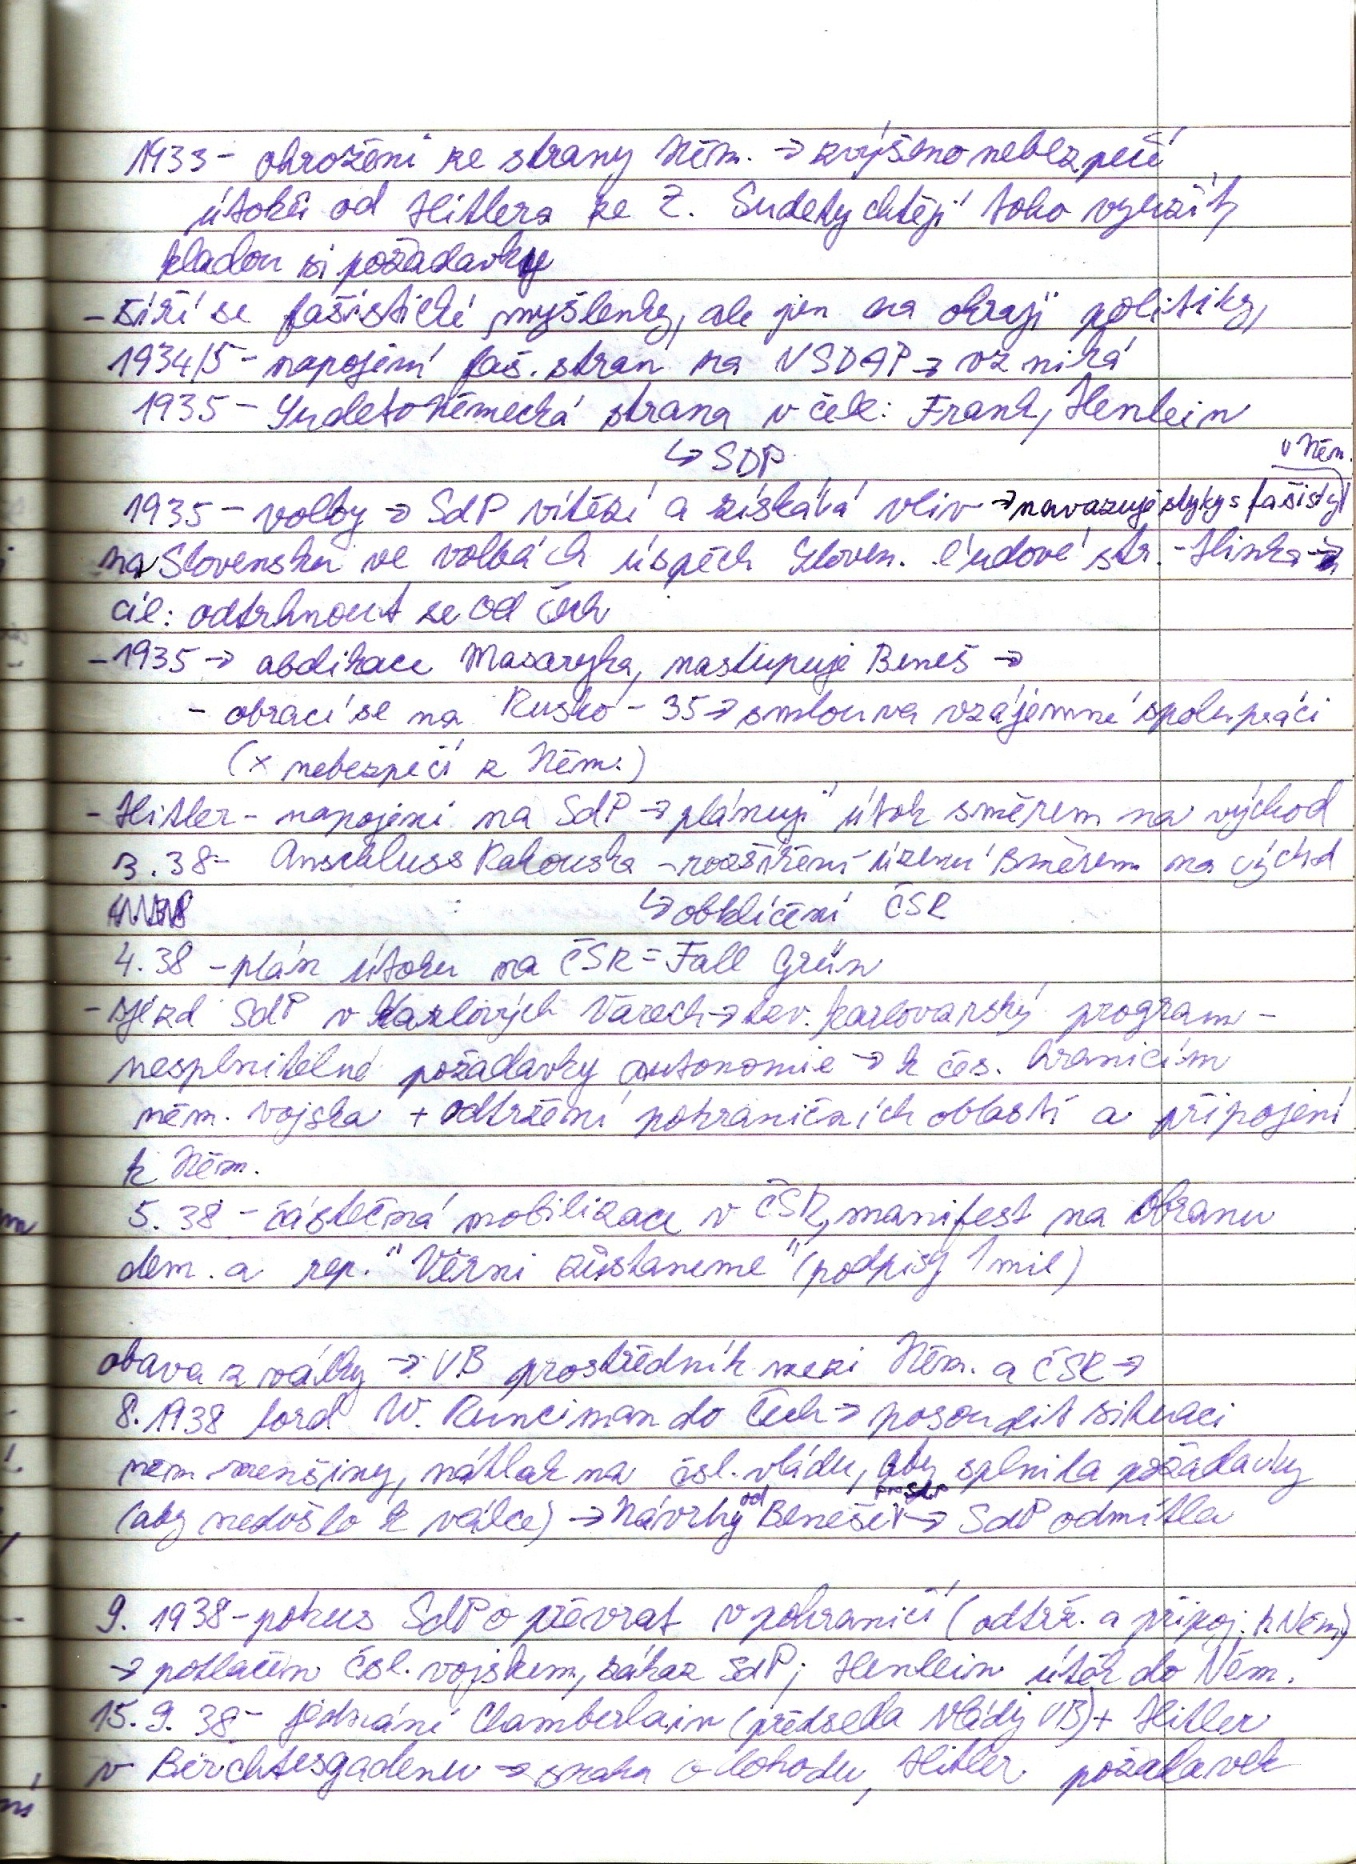 1933 - ohrožení ze strany Něm. → zvýšeno nebezpečí
útoků od Hitlera ze Z. Sudety chtějí toho využít,
kladou si požadavky
- šíří se fašistické myšlenky, ale jen na okraji politiky,
1934/5 - napojení faš. stran na NSDAP → vzniká
1935 - Sudetoněmecká strana v čele: Frank, Henlein
↳ SDP
v Něm.
1935 - volby → SdP vítězí a získává vliv → navazuje styky s fašisty
na Slovensku ve volbách úspěch Sloven. ľudové str. - Hlinka →
cíl: odtrhnout se od Čech
- 1935 → abdikace Masaryka, nastupuje Beneš →
- obrací se na Rusko - 35 → smlouva vzájemné spolupráci
(x nebezpečí z Něm.)
- Hitler - napojení na SdP → plánují útok směrem na východ
3. 38 - Anschluss Rakouska - rozšíření území směrem na východ
↳ obklíčení ČSR
4. 38 - plán útoku na ČSR = Fall Grün
- sjezd SdP v Karlových Varech → tzv. karlovarský program -
nesplnitelné požadavky autonomie → k čes. hranicím
něm. vojska + odtržení pohraničních oblastí a připojení
k Něm.
5. 38 - částečná mobilizace v ČSR, manifest na obranu
dem. a rep. "Věrni zůstaneme" (podpisy 1 mil)
obava z války → VB prostředník mezi Něm. a ČSR →
8. 1938 lord W. Runciman do Čech → posoudit situaci
něm menšiny, nátlak na čsl. vládu, aby splnila požadavky
(aby nedošlo k válce) → Návrhy od Beneše pro SdP → SdP odmítla
9. 1938 - pokus SdP o převrat v pohraničí (odtrž. a připoj. k Něm)
→ potlačen čsl. vojskem, zákaz SdP; Henlein útěk do Něm.
15. 9. 38 - jednání Chamberlain (předseda vlády VB) + Hitler
v Berchtesgadenu → snaha o dohodu, Hitler požadavek